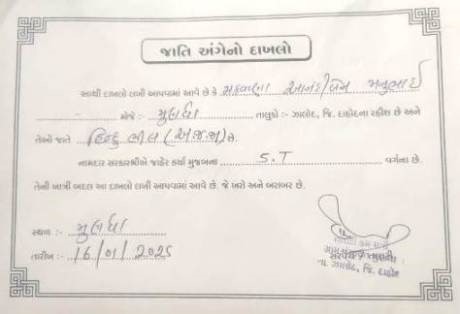 જાતિ અંગેનો દાખલો
આથી દાખલો લખી આપવામાં આવે છે કે મકવાણા આનંદીબેન મનુભાઇ
મોજે :- તાલુકો :- ઝાલોદ, જિ. દાહોદના રહીશ છે અને
તેઓ જાતે હિન્દુ ભીલ (અ.જ.જા) છે.
નામદાર સરકારશ્રીએ જાહેર કર્યા મુજબના S.T વર્ગના છે.
તેની ખાત્રી બદલ આ દાખલો લખી આપવામાં આવે છે. જે ખરો અને બરાબર છે.
સ્થળ :-
તારીખ :- 16/01/2025
તા. ઝાલોદ, જિ. દાહોદ